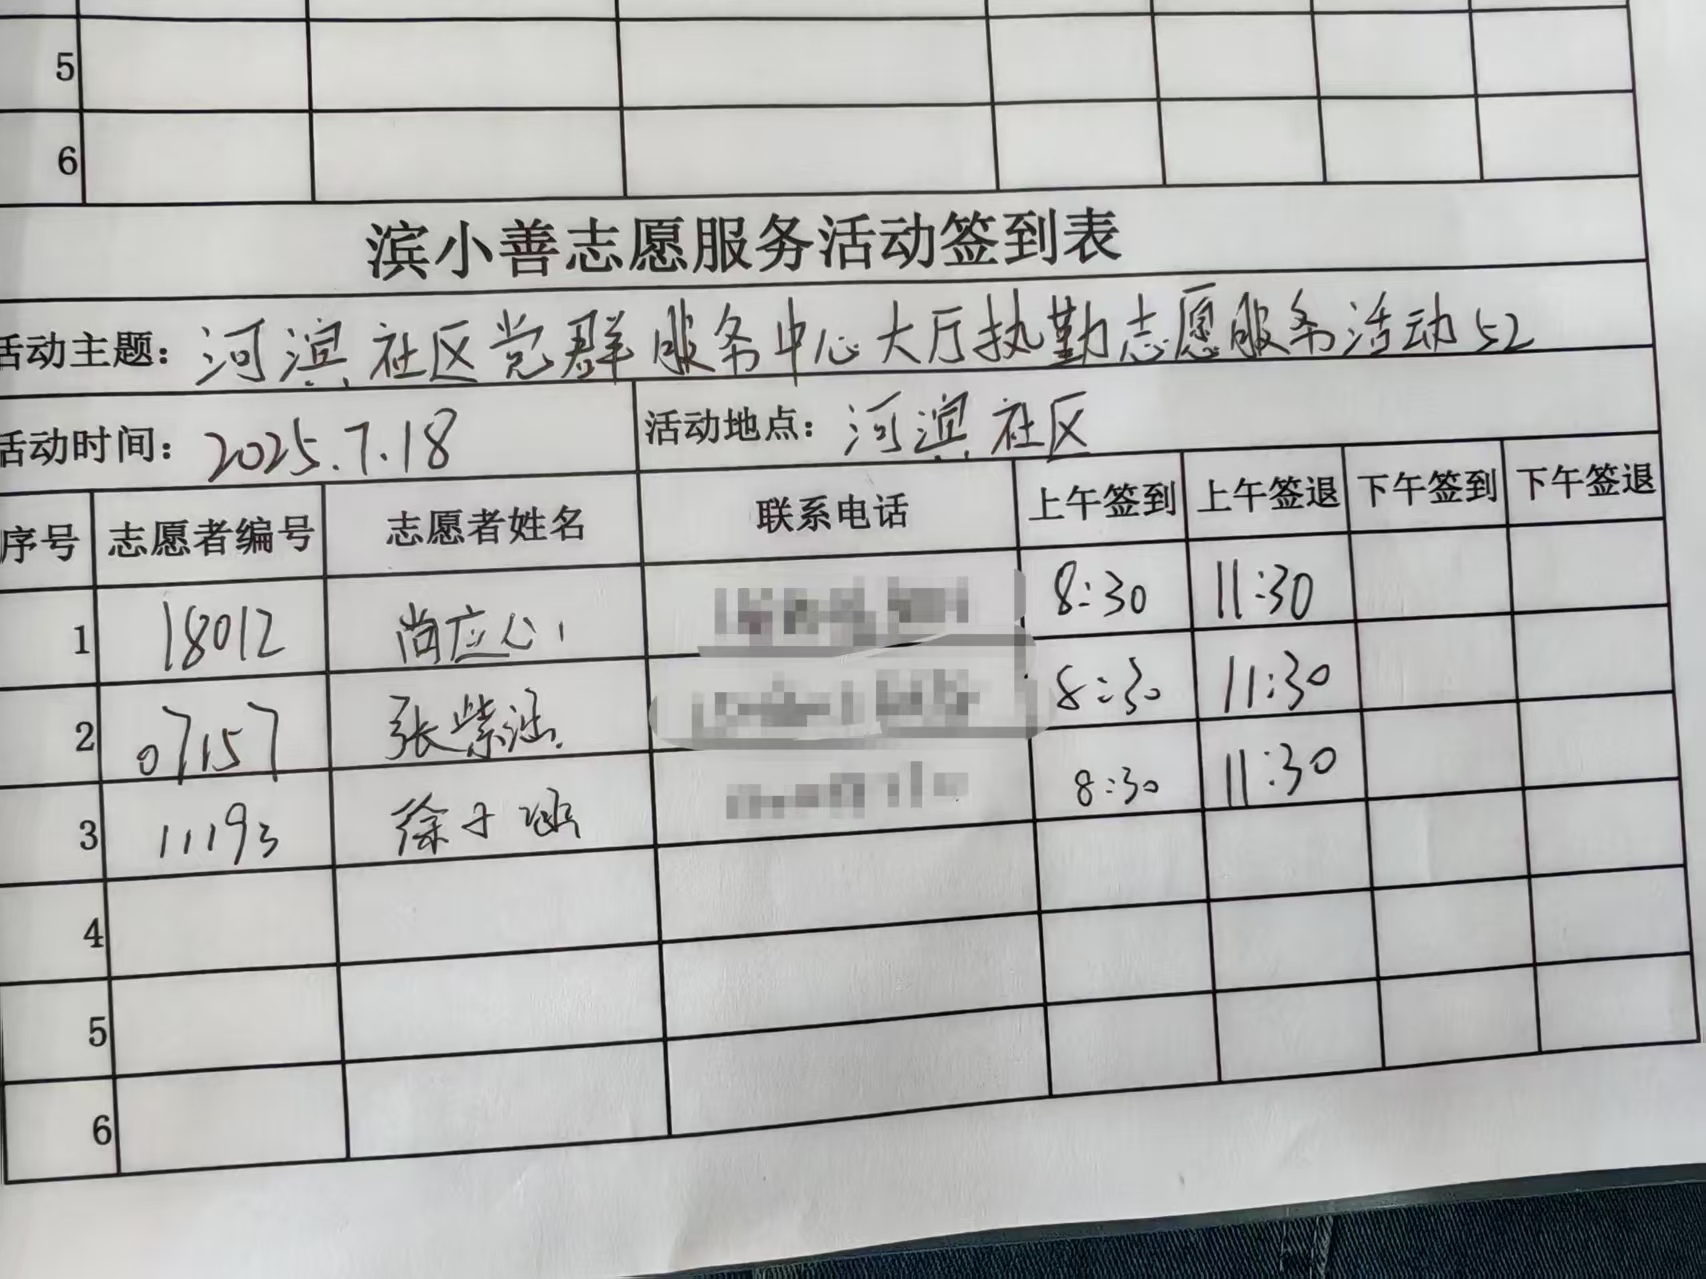 5
6
滨小善志愿服务活动签到表
活动主题：河滨社区党群服务中心大厅执勤志愿服务活动52
活动时间：2025.7.18 活动地点：河滨社区
序号 志愿者编号 志愿者姓名 联系电话 上午签到 上午签退 下午签到 下午签退
1 18012 尚应心 8:30 11:30
2 07157 张紫涵 8:30 11:30
3 11193 徐子涵 8:30 11:30
4
5
6